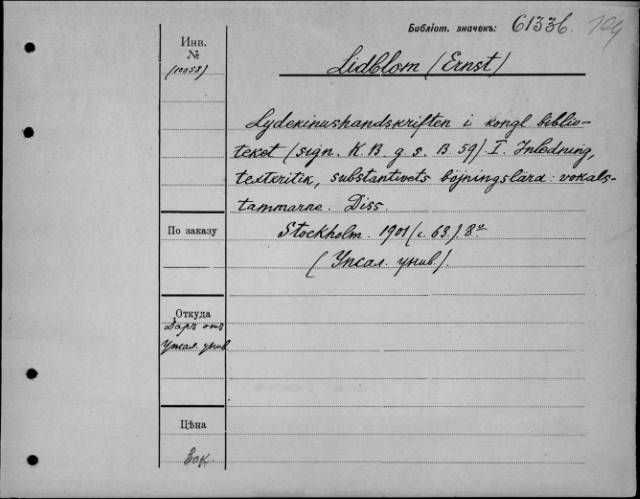 Библіот. значекъ: 61336. 704
Инв.
№
(10058)
Lidblom (Ernst)
Lydekinushandskriften i kongl biblio-
teket (sign. K. B. g s. B 59) I. Inledning,
textkritik, substantivets böjningslära: vokals-
tammarne. Diss.
По заказу
Stockholm. 1901 (с. 63.) 8º
(Упсал. унив.).
Откуда
Даръ отъ
Упсал. унив
Цѣна
30к.